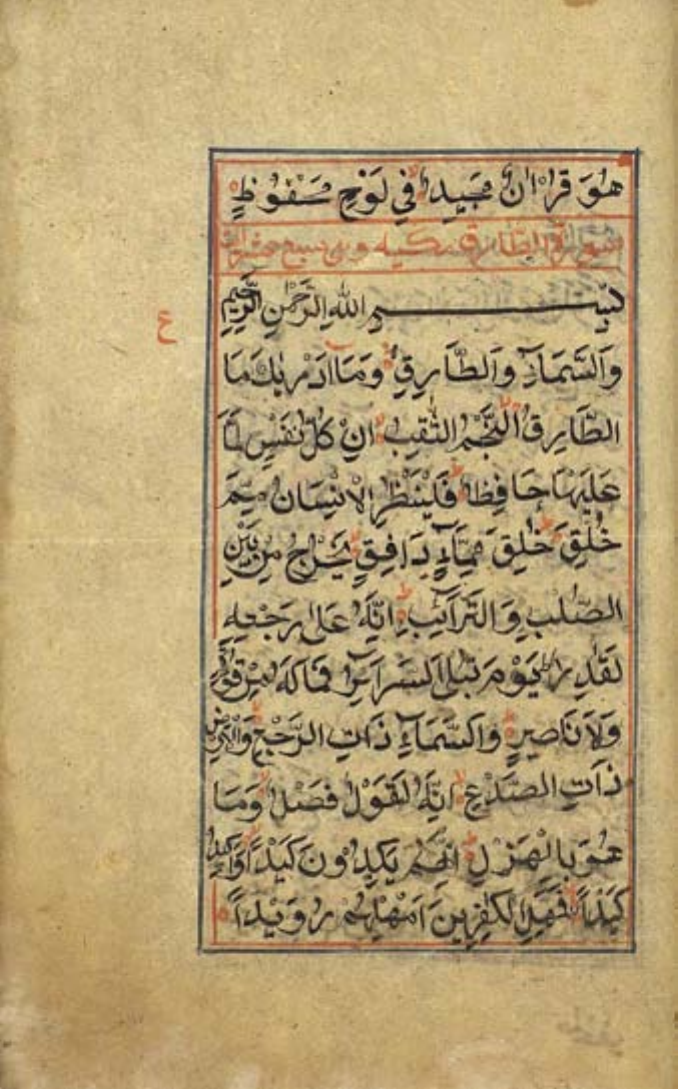 هُوَ قُرْاٰنٌ مَجِيدٌ فِي لَوْحٍ مَحْفُوظٍ
سورة الطارق مكيه وهي سبع عشرايت
بِسْمِ اللهِ الرَّحْمٰنِ الرَّحِيمِ
ع
وَالسَّمَآءِ وَالطَّارِقِ وَمَآ اَدْرٰيكَ مَا
الطَّارِقُ النَّجْمُ الثَّقِبُ اِنْ كُلُّ نَفْسٍ لَمَّا
عَلَيْهَا حَافِظٌ فَلْيَنْظُرِ الْاِنْسَانُ مِمَّ
خُلِقَ خُلِقَ مِنْ مَآءٍ دَافِقٍ يَخْرُجُ مِنْ بَيْنِ
الصُّلْبِ وَالتَّرَآئِبِ اِنَّهُ عَلٰى رَجْعِهِ
لَقَادِرٌ يَوْمَ تُبْلَى السَّرَآئِرُ فَمَا لَهُ مِنْ قُوَّةٍ
وَلَا نَاصِرٍ وَالسَّمَآءِ ذَاتِ الرَّجْعِ وَالْاَرْضِ
ذَاتِ الصَّدْعِ اِنَّهُ لَقَوْلٌ فَصْلٌ وَمَا
هُوَ بِالْهَزْلِ اِنَّهُمْ يَكِدُونَ كَيْدًا وَاَكِيدُ
كَيْدًا فَمَهِّلِ الْكٰفِرِينَ اَمْهِلْهُمْ رُوَيْدًا